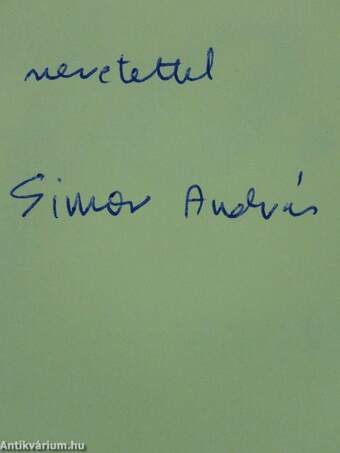 nevetettel
Simor András
Antikvárium.hu